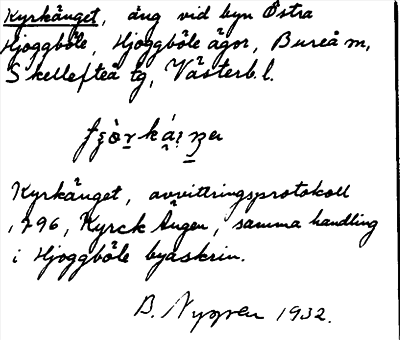 Kyrkänget, äng vid byn Östra
Hjoggböle, Hjoggböle ägor, Bureå m,
Skellefteå tg, Västerb. l.
Kyrkänget, avvittringsprotokoll
1796, Kyrck Ängen, samma handling
i Hjoggböle byaskrin.
B. Nygren 1932.